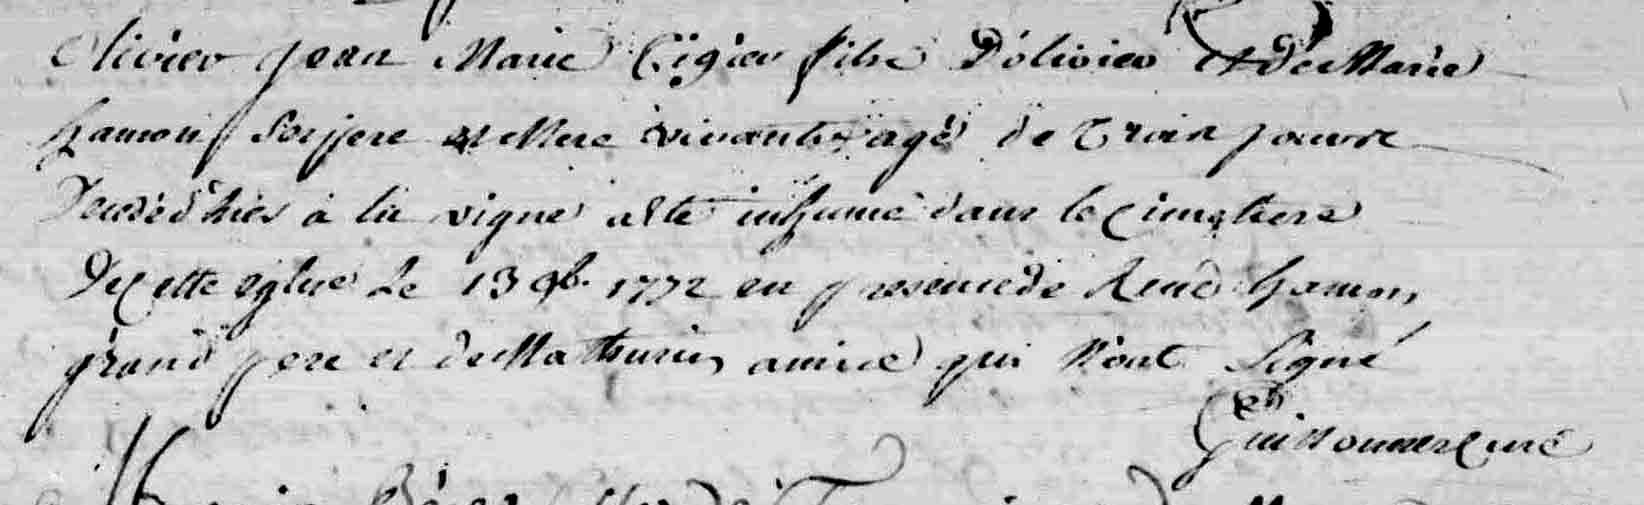 Olivier Jean Marie Cigier fils d'olivier et de Marie
hamon ses pere et Mere vivants agé de Trois jours
decédé hier à la vigne a été inhumé dans le Cimetiere
De Cette eglise Le 13 9b. 1772 en presence de René hamon
grand pere et de Mathurin amice qui N'ont Signé
curé